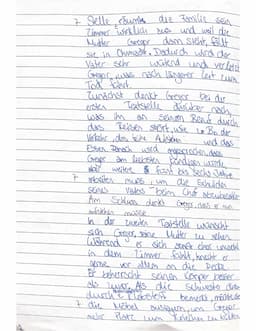 Stelle räumt die Familie sein
Zimmer wirklich aus und weil die
Mutter Gregor dann sieht, fällt
sie in Ohnmacht. Dadurch wird der
Vater sehr wütend und verletzt
Gregor, was nach längerer Zeit zum
Tod führt.
Zunächst denkt Gregor bei der
ersten Textstelle darüber nach,
was ihn an seinem Beruf durch
das Reisen stört, wie z.B. der
Verkehr, das frühe Aufstehen und das
Essen. Danach wird
Gregor am liebsten kündigen würde
weitere 5 bis sechs Jahre
arbeiten muss, um die Schulden
seines Vaters beim Chef abzubezahlen.
Am Schluss denkt Gregor, dass er nun
aufstehen müsse.
In der zweiten Textstelle wünscht
sich Gregor, seine Mutter zu sehen.
Während er sich sonst eher
in dem Zimmer fühlt, kriecht er
gerne vor allem an die Decke.
Er beherrscht seinen Körper besser
als zuvor. Als die Schwester das
durch bemerkt, möchte sie
die Möbel ausräumen, um Gregor
mehr Platz zum Kriechen zu